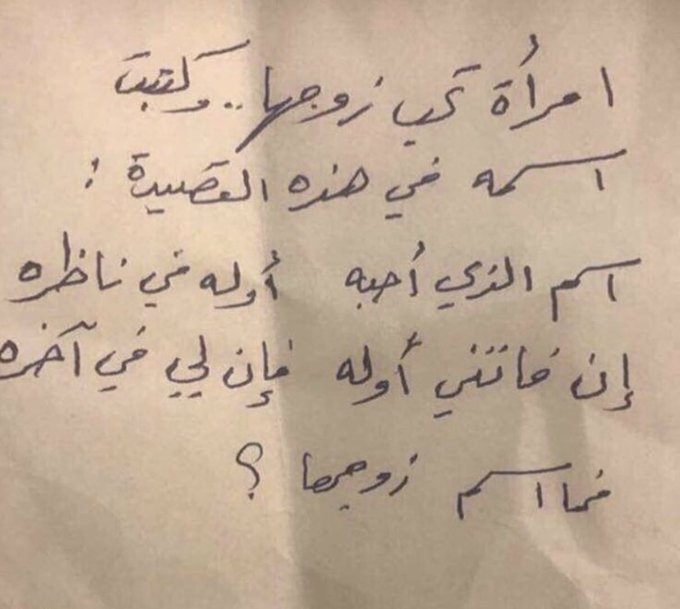 امرأة تحب زوجها.. وكتبت
اسمه في هذه القصيدة :
اسم الذي أحبه أوله في ناظره
إن فاتني أوله فإن لي في آخره
فما اسم زوجها ؟